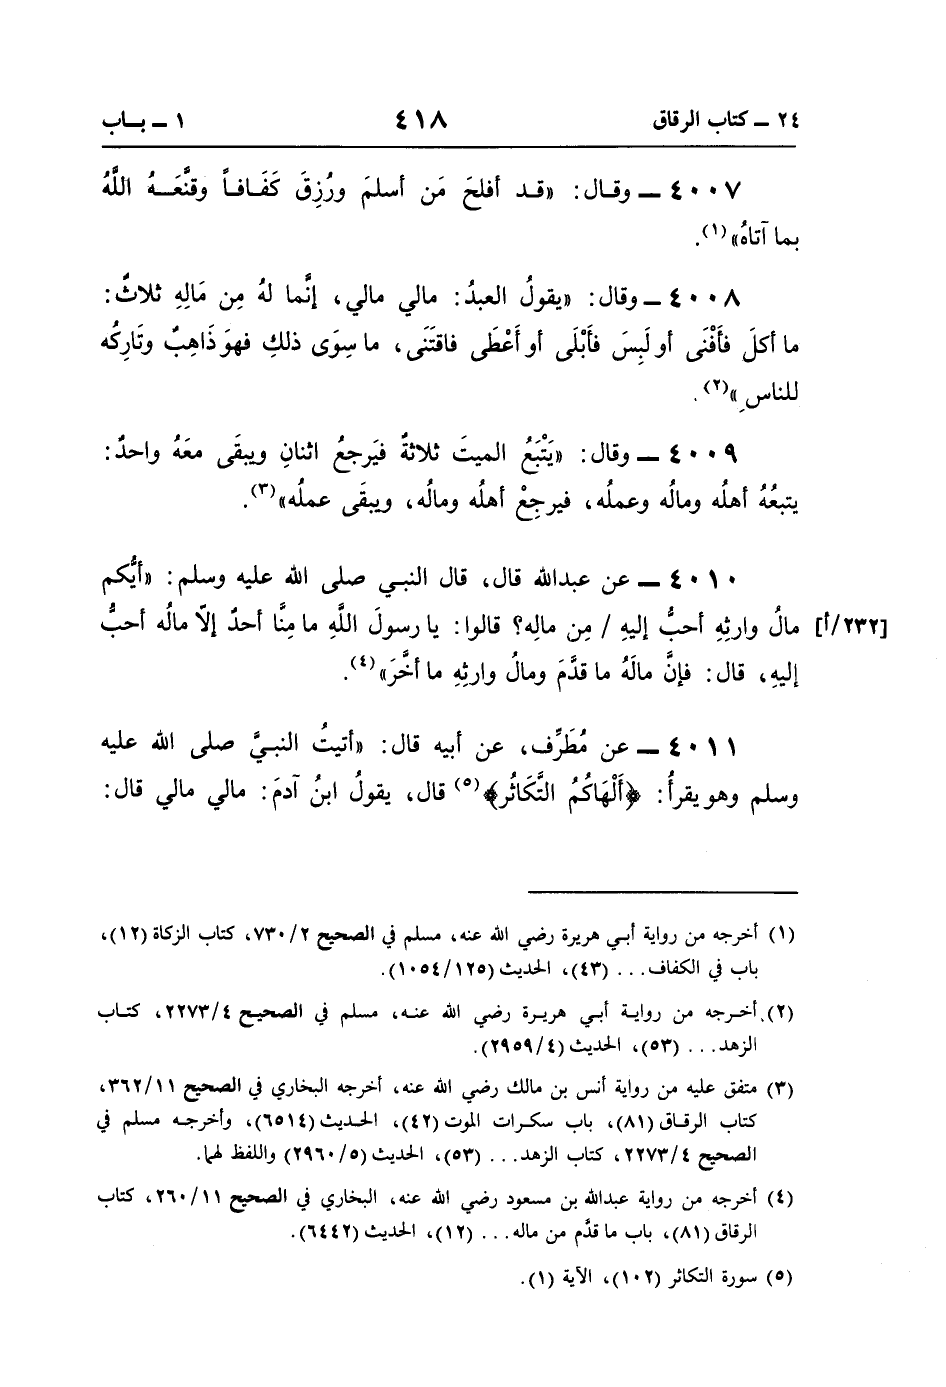 ٢٤ ــ كتاب الرقاق ٤١٨ ١ ــ بــاب
٤٠٠٧ ــ وقـال: «قـد أفلحَ مَن أسلمَ ورُزِقَ كَفَـافـاً وقنَّعَــهُ اللَّهُ
بما آتاهُ»(١).
٤٠٠٨ ــ وقال: «يقولُ العبدُ: مالي مالي، إنَّما لهُ مِن مَالِهِ ثلاثٌ:
ما أكلَ فأَفْنَى أو لَبِسَ فأَبْلَى أو أَعْطَى فاقتَنَى، ما سِوَى ذلكِ فهوَ ذَاهِبٌ وتَارِكُه
للناسِ»(٢).
٤٠٠٩ ــ وقال: «يَتْبَعُ الميتَ ثلاثةٌ فيَرجعُ اثنانِ ويبقَى معَهُ واحدٌ:
يتبعُهُ أهلُه ومالُه وعملُه، فيرجِعْ أهلُه ومالُه، ويبقَى عملُه»(٣).
٤٠١٠ ــ عن عبدالله قال، قال النبـي صلى الله عليه وسلم: «أيُّكم
مالُ وارثِهِ أحبُّ إليهِ / مِن مالِه؟ قالوا: يا رسولَ اللَّهِ ما مِنَّا أحدٌ إلاّ مالُه أحبُّ [٢٣٢/أ]
إليهِ، قال: فإنَّ مالَهُ ما قدَّمَ ومالُ وارثِهِ ما أخَّرَ»(٤).
٤٠١١ ــ عن مُطَرِّف، عن أبيه قال: «أتيتُ النبـيَّ صلى الله عليه
وسلم وهو يقرأُ: ﴿أَلْهَاكُمُ التَّكَاثُر﴾(٥) قال، يقولُ ابنُ آدمَ: مالي مالي قال:
(١) أخرجه من رواية أبـي هريرة رضي الله عنه، مسلم في الصحيح ٧٣٠/٢، كتاب الزكاة (١٢)،
باب في الكفاف... (٤٣)، الحديث (١٠٥٤/١٢٥).
(٢) أخـرجه من روايـة أبـي هريـرة رضي الله عنـه، مسلم في الصحيـح ٢٢٧٣/٤، كتـاب
الزهد... (٥٣)، الحديث (٢٩٥٩/٤).
(٣) متفق عليه من رواية أنس بن مالك رضي الله عنه، أخرجه البخاري في الصحيح ٣٦٢/١١،
كتاب الرقـاق (٨١)، باب سكـرات الموت (٤٢)، الحـديث (٦٥١٤)، وأخرجـه مسلم في
الصحيح ٢٢٧٣/٤، كتاب الزهد... (٥٣)، الحديث (٢٩٦٠/٥) واللفظ لهما.
(٤) أخرجه من رواية عبدالله بن مسعود رضي الله عنه، البخاري في الصحيح ٢٦٠/١١، كتاب
الرقاق (٨١)، باب ما قدَّم من ماله... (١٢)، الحديث (٦٤٤٢).
(٥) سورة التكاثر (١٠٢)، الآية (١).